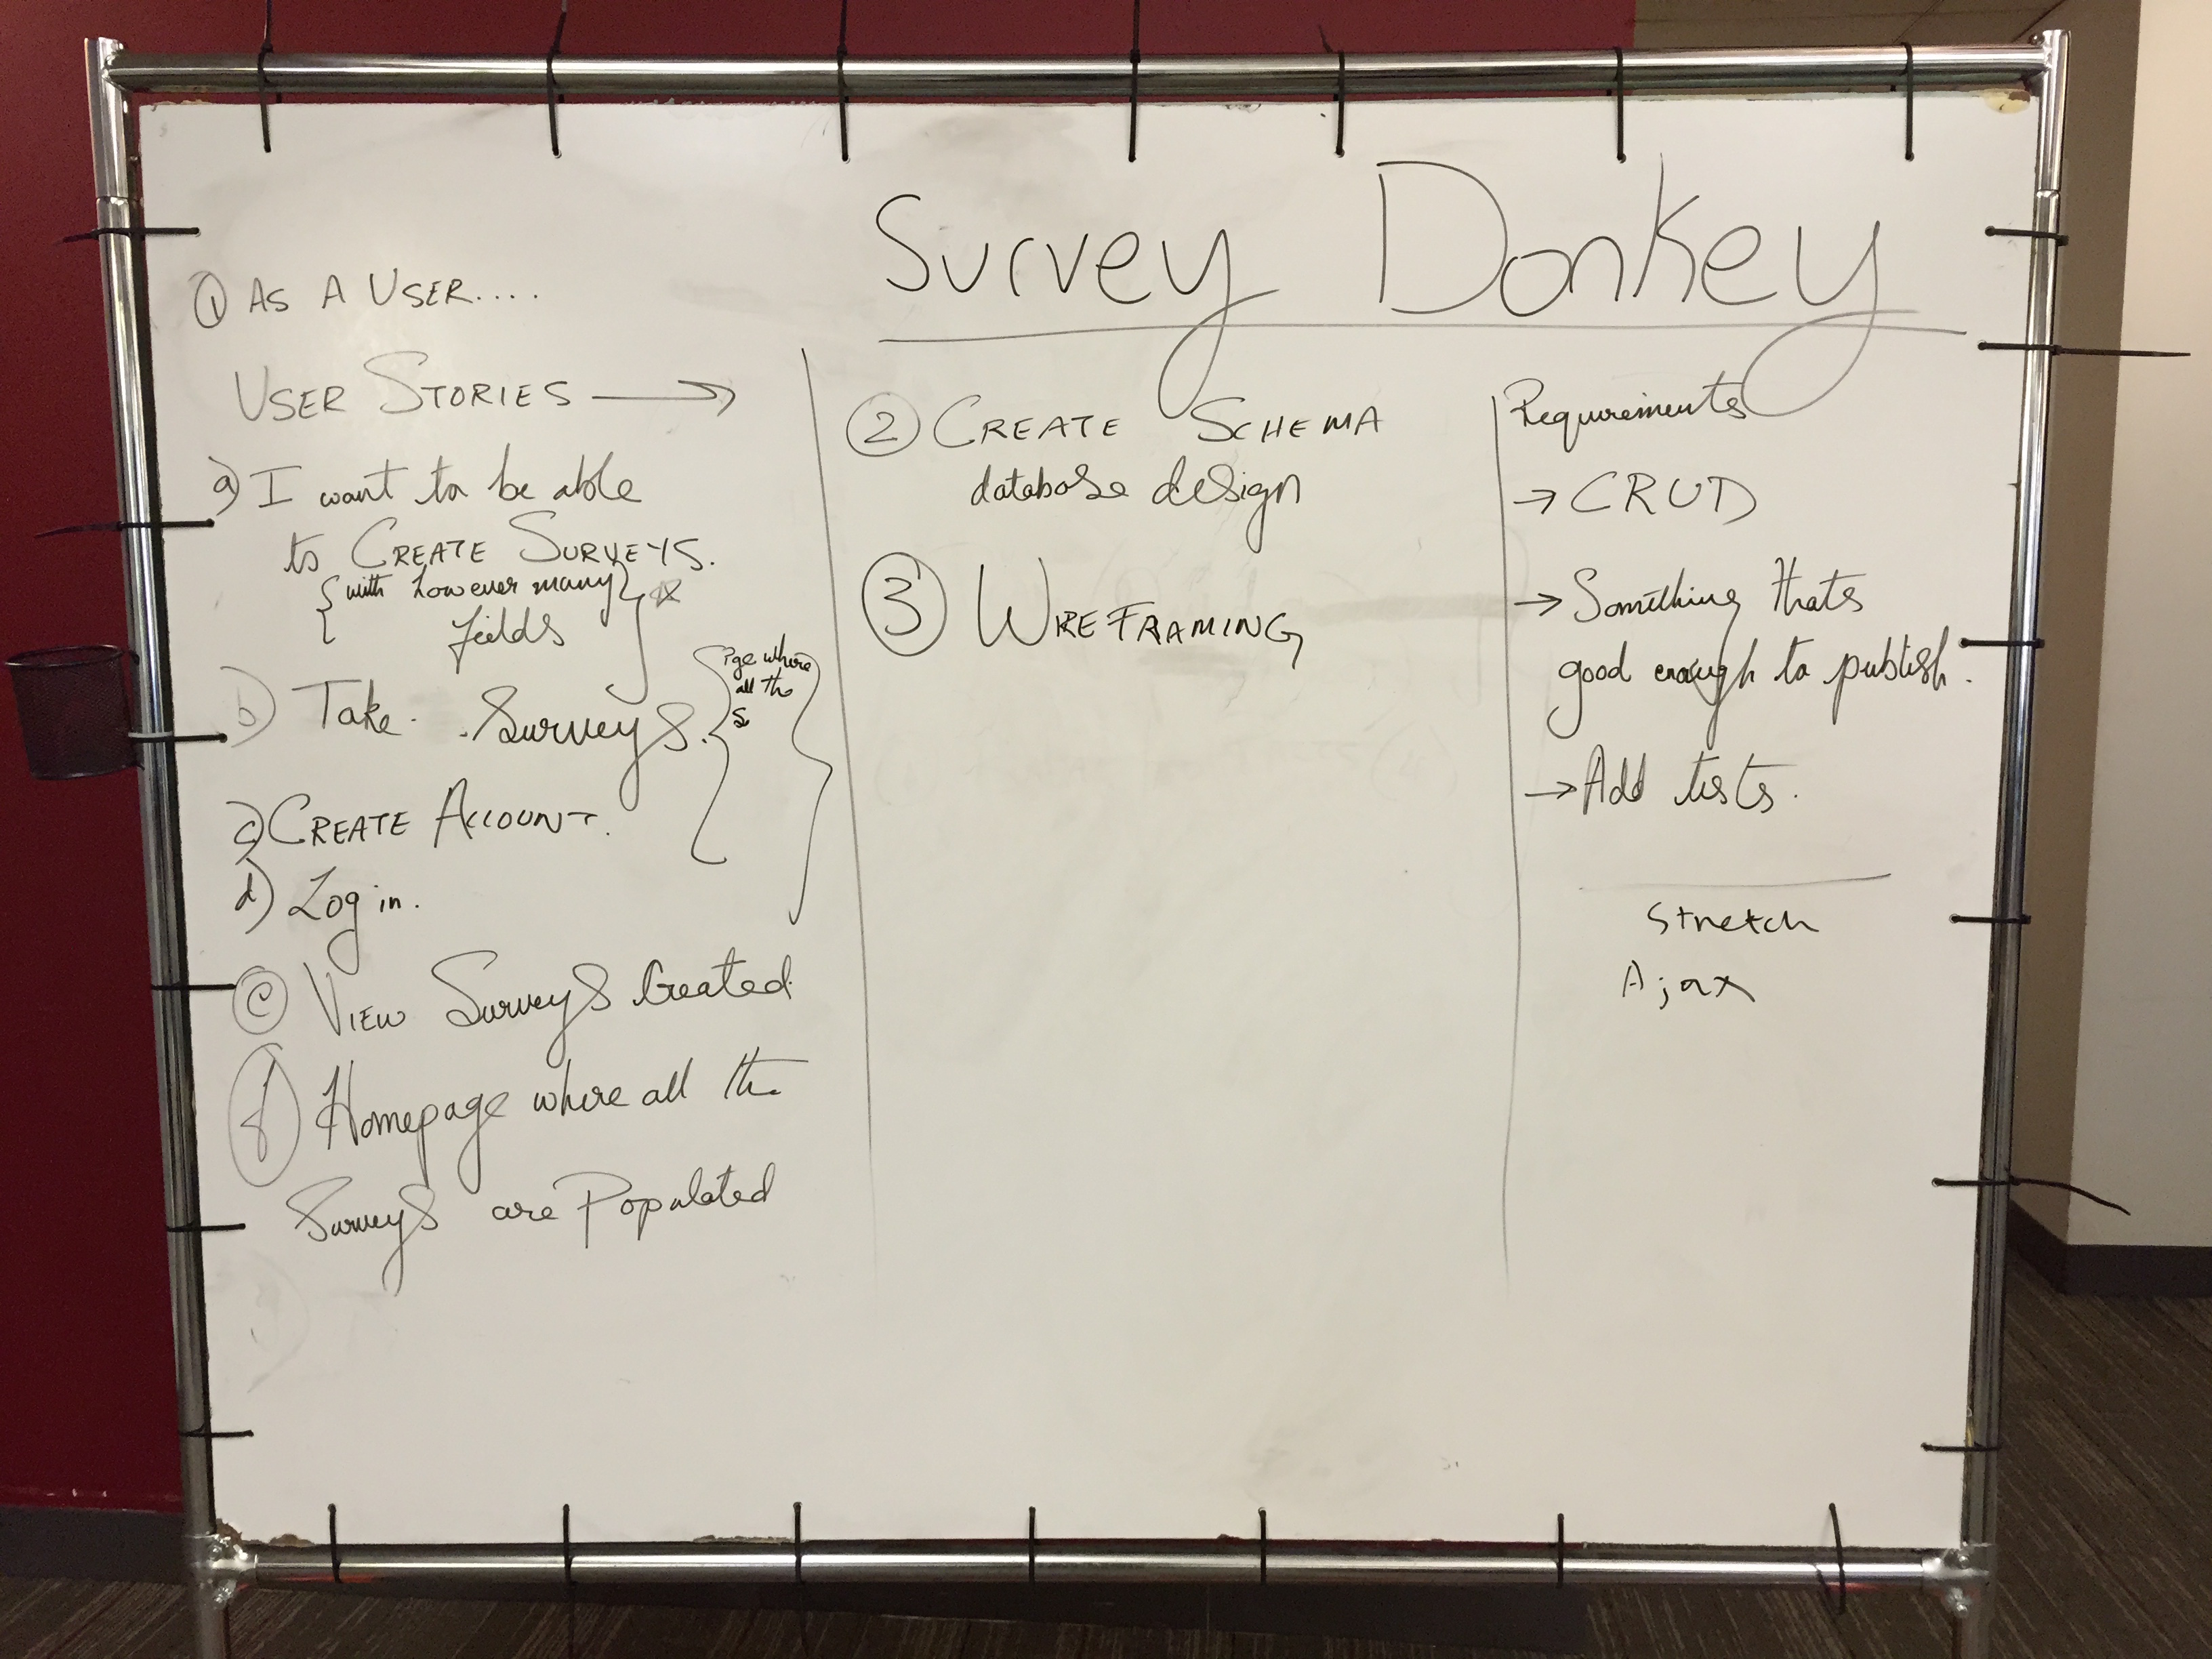 Survey Donkey
① As A User....
User Stories →
a) I want to be able
to Create Surveys.
{with however many}
fields
b) Take Surveys.
{Pge where
all the
S
c) Create Account.
d) Log in.
ⓔ View Surveys Created
ⓕ Homepage where all the
Surveys are Populated
② Create Schema
database design
③ Wireframing
Requirements
→ CRUD
→ Something thats
good enough to publish.
→ Add tests.
Stretch
Ajax